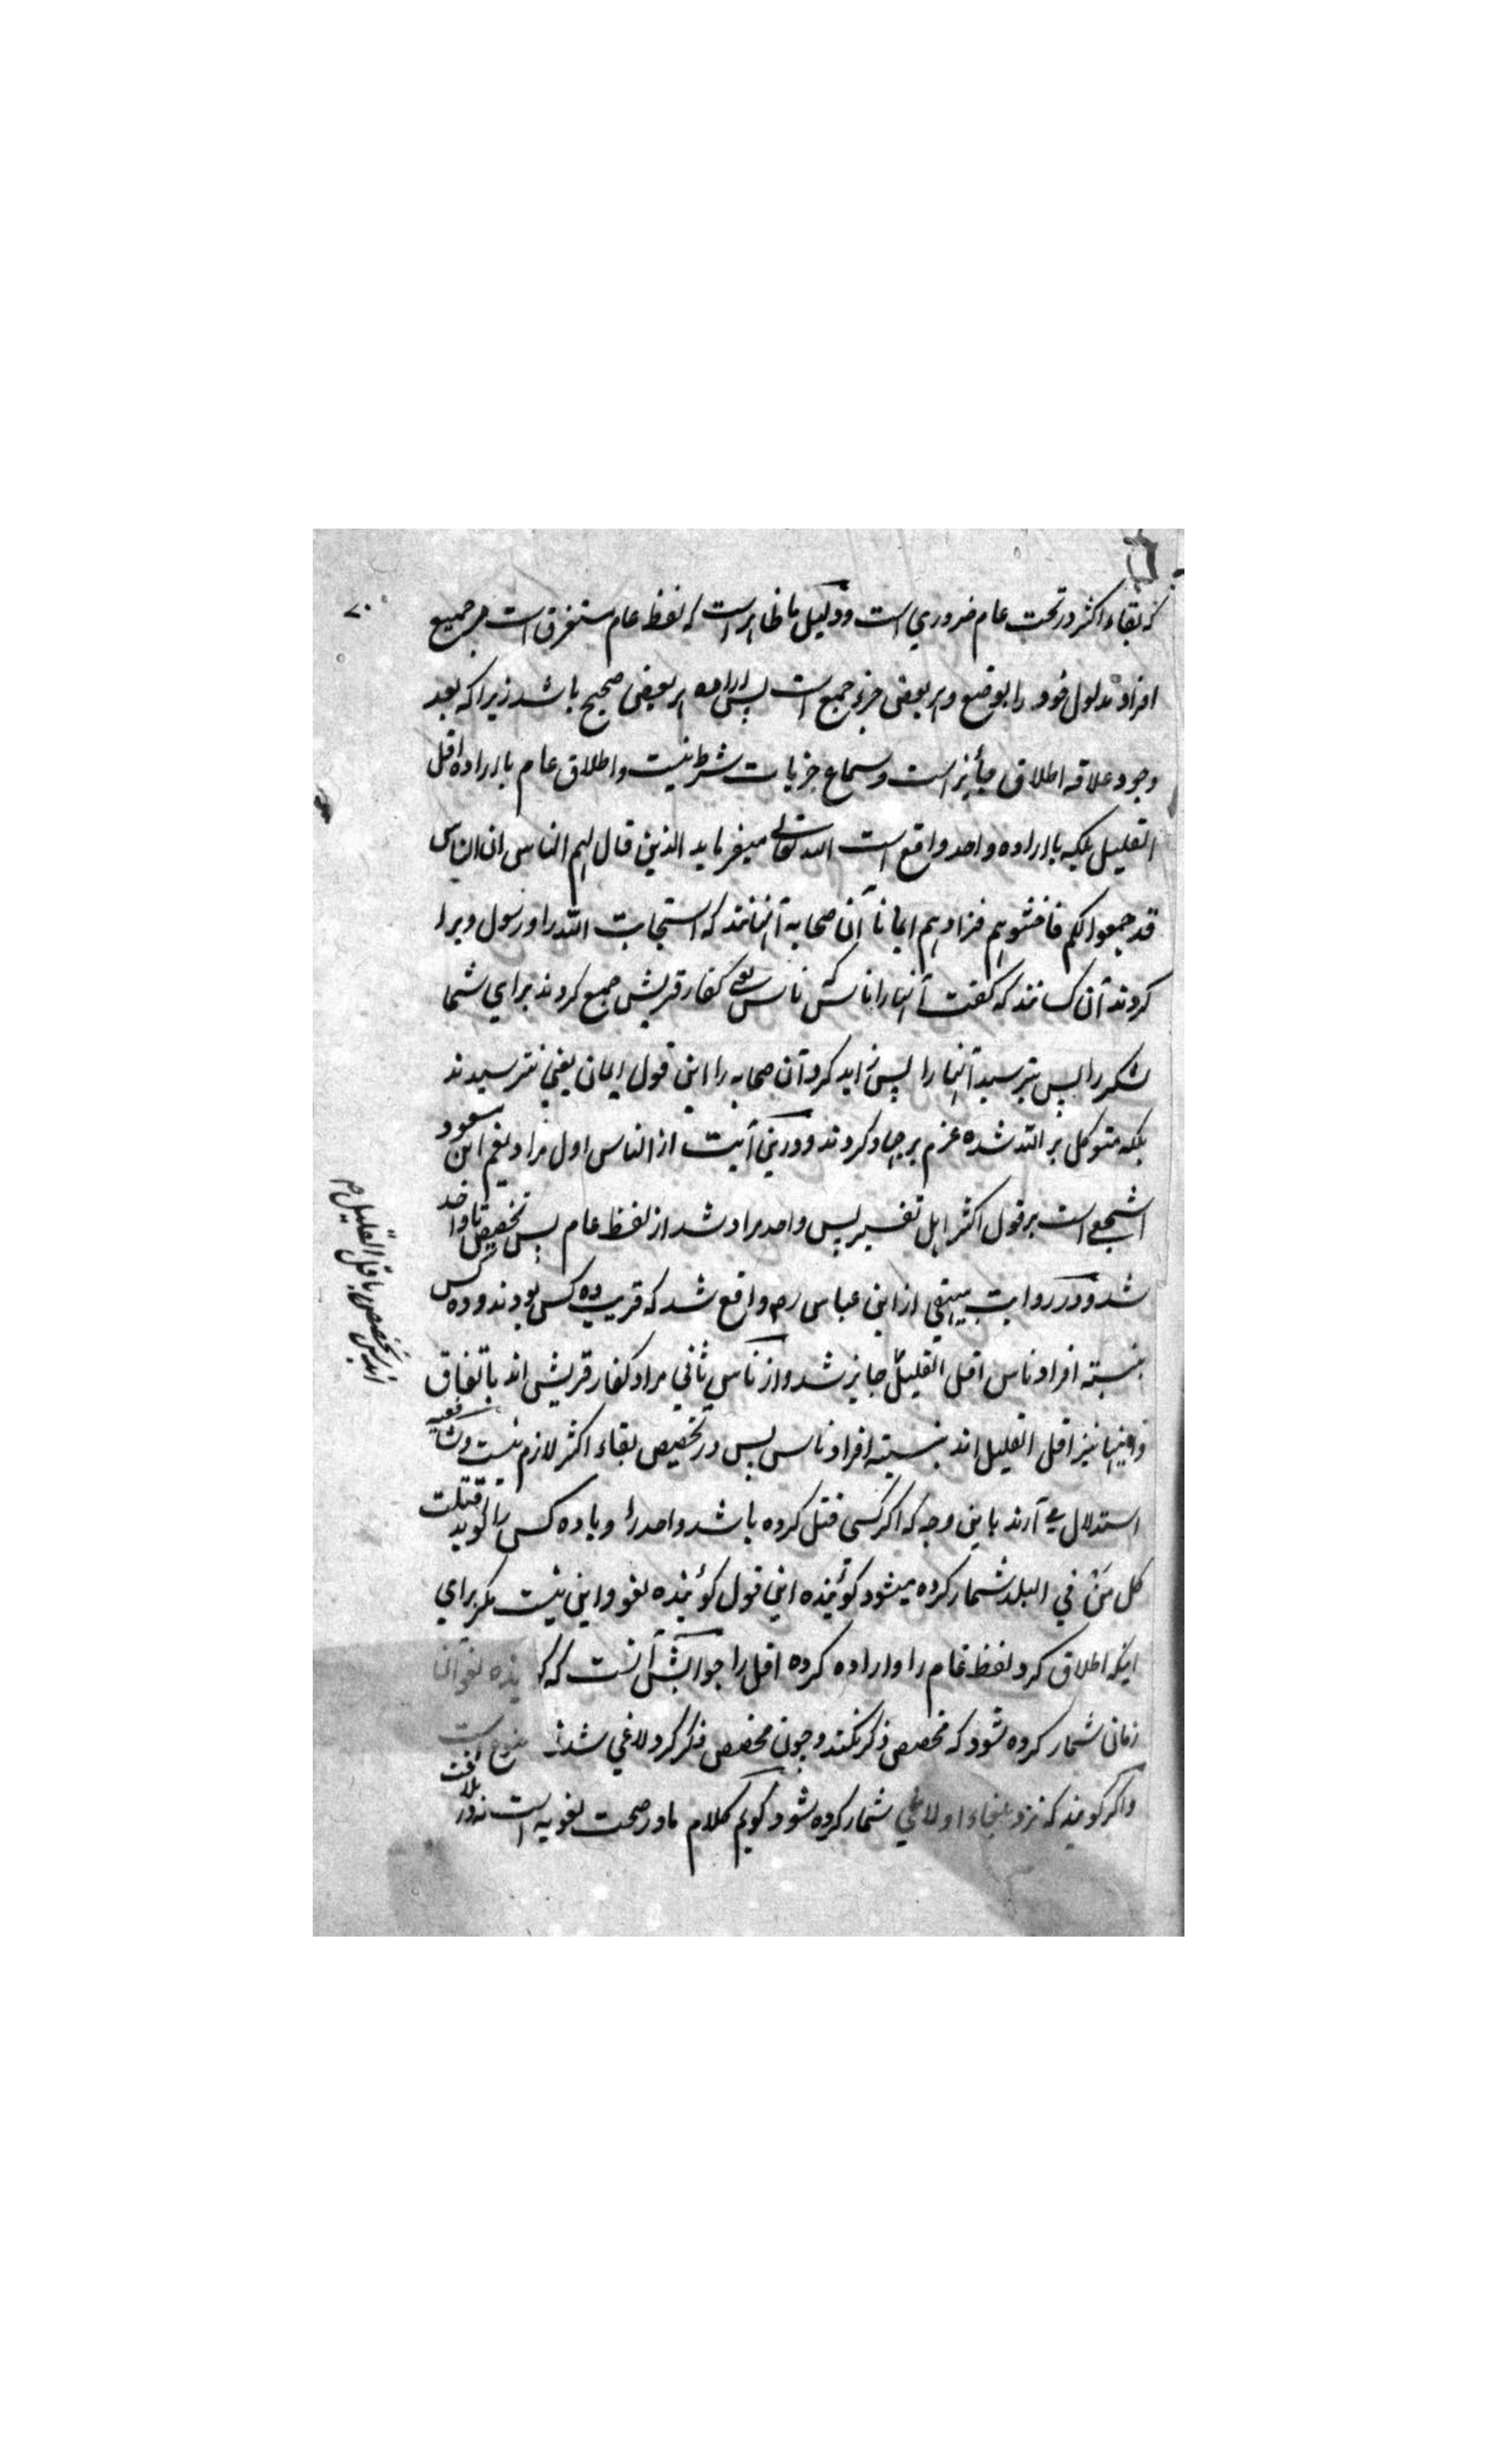 ۷۰
که بقاء اکثر در تحت عام ضروری است ودلیل ما ظاهر است که لفظ عام مستغرق است مر جمیع
افراد مدلول خود را بوضع وهر بعض جزء جمیع است پس اراده هر بعض صحیح باشد زیرا که بعد
وجود علاقه اطلاق جائز است وسماع جزیات شرط نیست واطلاق عام با اراده اقل
القلیل بلکه با اراده واحد واقع است الله تعالی میفرماید الذین قال لهم الناس ان الناس
قد جمعوا لکم فاخشوهم فزادهم ایمانا آن صحابه آنانند که استجابت الله را ورسول ویرا
کردند آن کسانند که گفت آنها را ناس که ناس یعنی کفار قریش جمع کردند برای شما
لشکر را پس بترسید آنها را پس زاید کرد آن صحابه را این قول ایمان یعنی نترسیدند
بلکه متوکل بر الله شده عزم بر جهاد کردند ودرین آیت از الناس اول مراد نعیم ابن مسعود
اشجعی است بر قول اکثر اهل تفسیر پس واحد مراد شد از لفظ عام پس تخصیص تا واحد
شد ودر روایت بیهقی از ابن عباس رض واقع شد که قریب ده کس بودند وده کس
بنسبته افراد ناس اقل القلیل جایز شد واز ناس ثانی مراد کفار قریش اند باتفاق
واینها نیز اقل القلیل اند بنسبته افراد ناس پس در تخصیص بقاء اکثر لازم نیست وشافعیه
استدلال می آرند باین وجه که اگر کسی قتل کرده باشد واحد را ویا ده کس را گوید قتلت
کل من فی البلد شمار کرده میشود گوئنده این قول گوئنده لغو واین نیست مگر برای
اینکه اطلاق کرد لفظ عام را واراده کرده اقل را جوابش آنست که گوینده لغو آن
زمان شمار کرده شود که مخصص ذکر نکند وچون مخصص ذکر کرد لاغی شدن ممنوع است
واگر گویند که نزد بلغاء او لاغی شمار کرده شود گویم کلام ما در صحت لغویه است نه در بلاغت
تخصیص باقل القلیل